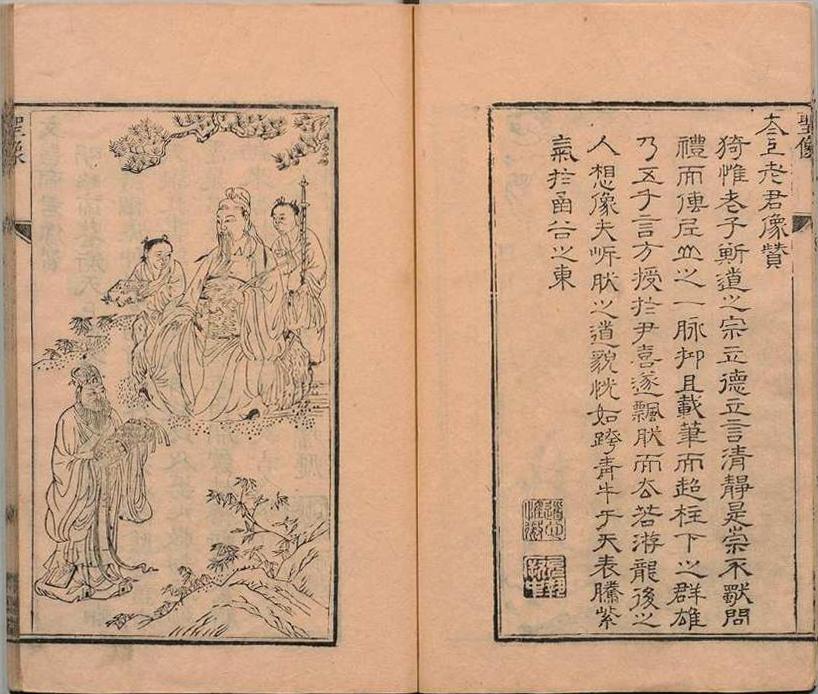 聖像
太上老君像贊
猗惟老子斯道之宗立德立言清靜是崇不猒問
禮而傳尼山之一脈抑且載筆而超柱下之群雄
乃五千言方授於尹喜遂飄然而去若游龍後之
人想像夫然之道貌恍如跨青牛于天表騰紫
氣於函谷之東
聖像